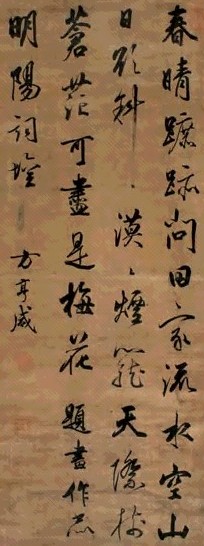 春晴蹀踄问田家流水空山
日欲斜漠漠煙籠天際樹
蒼茫可盡是梅花 題畫作為
明陽詞壇 方亨咸